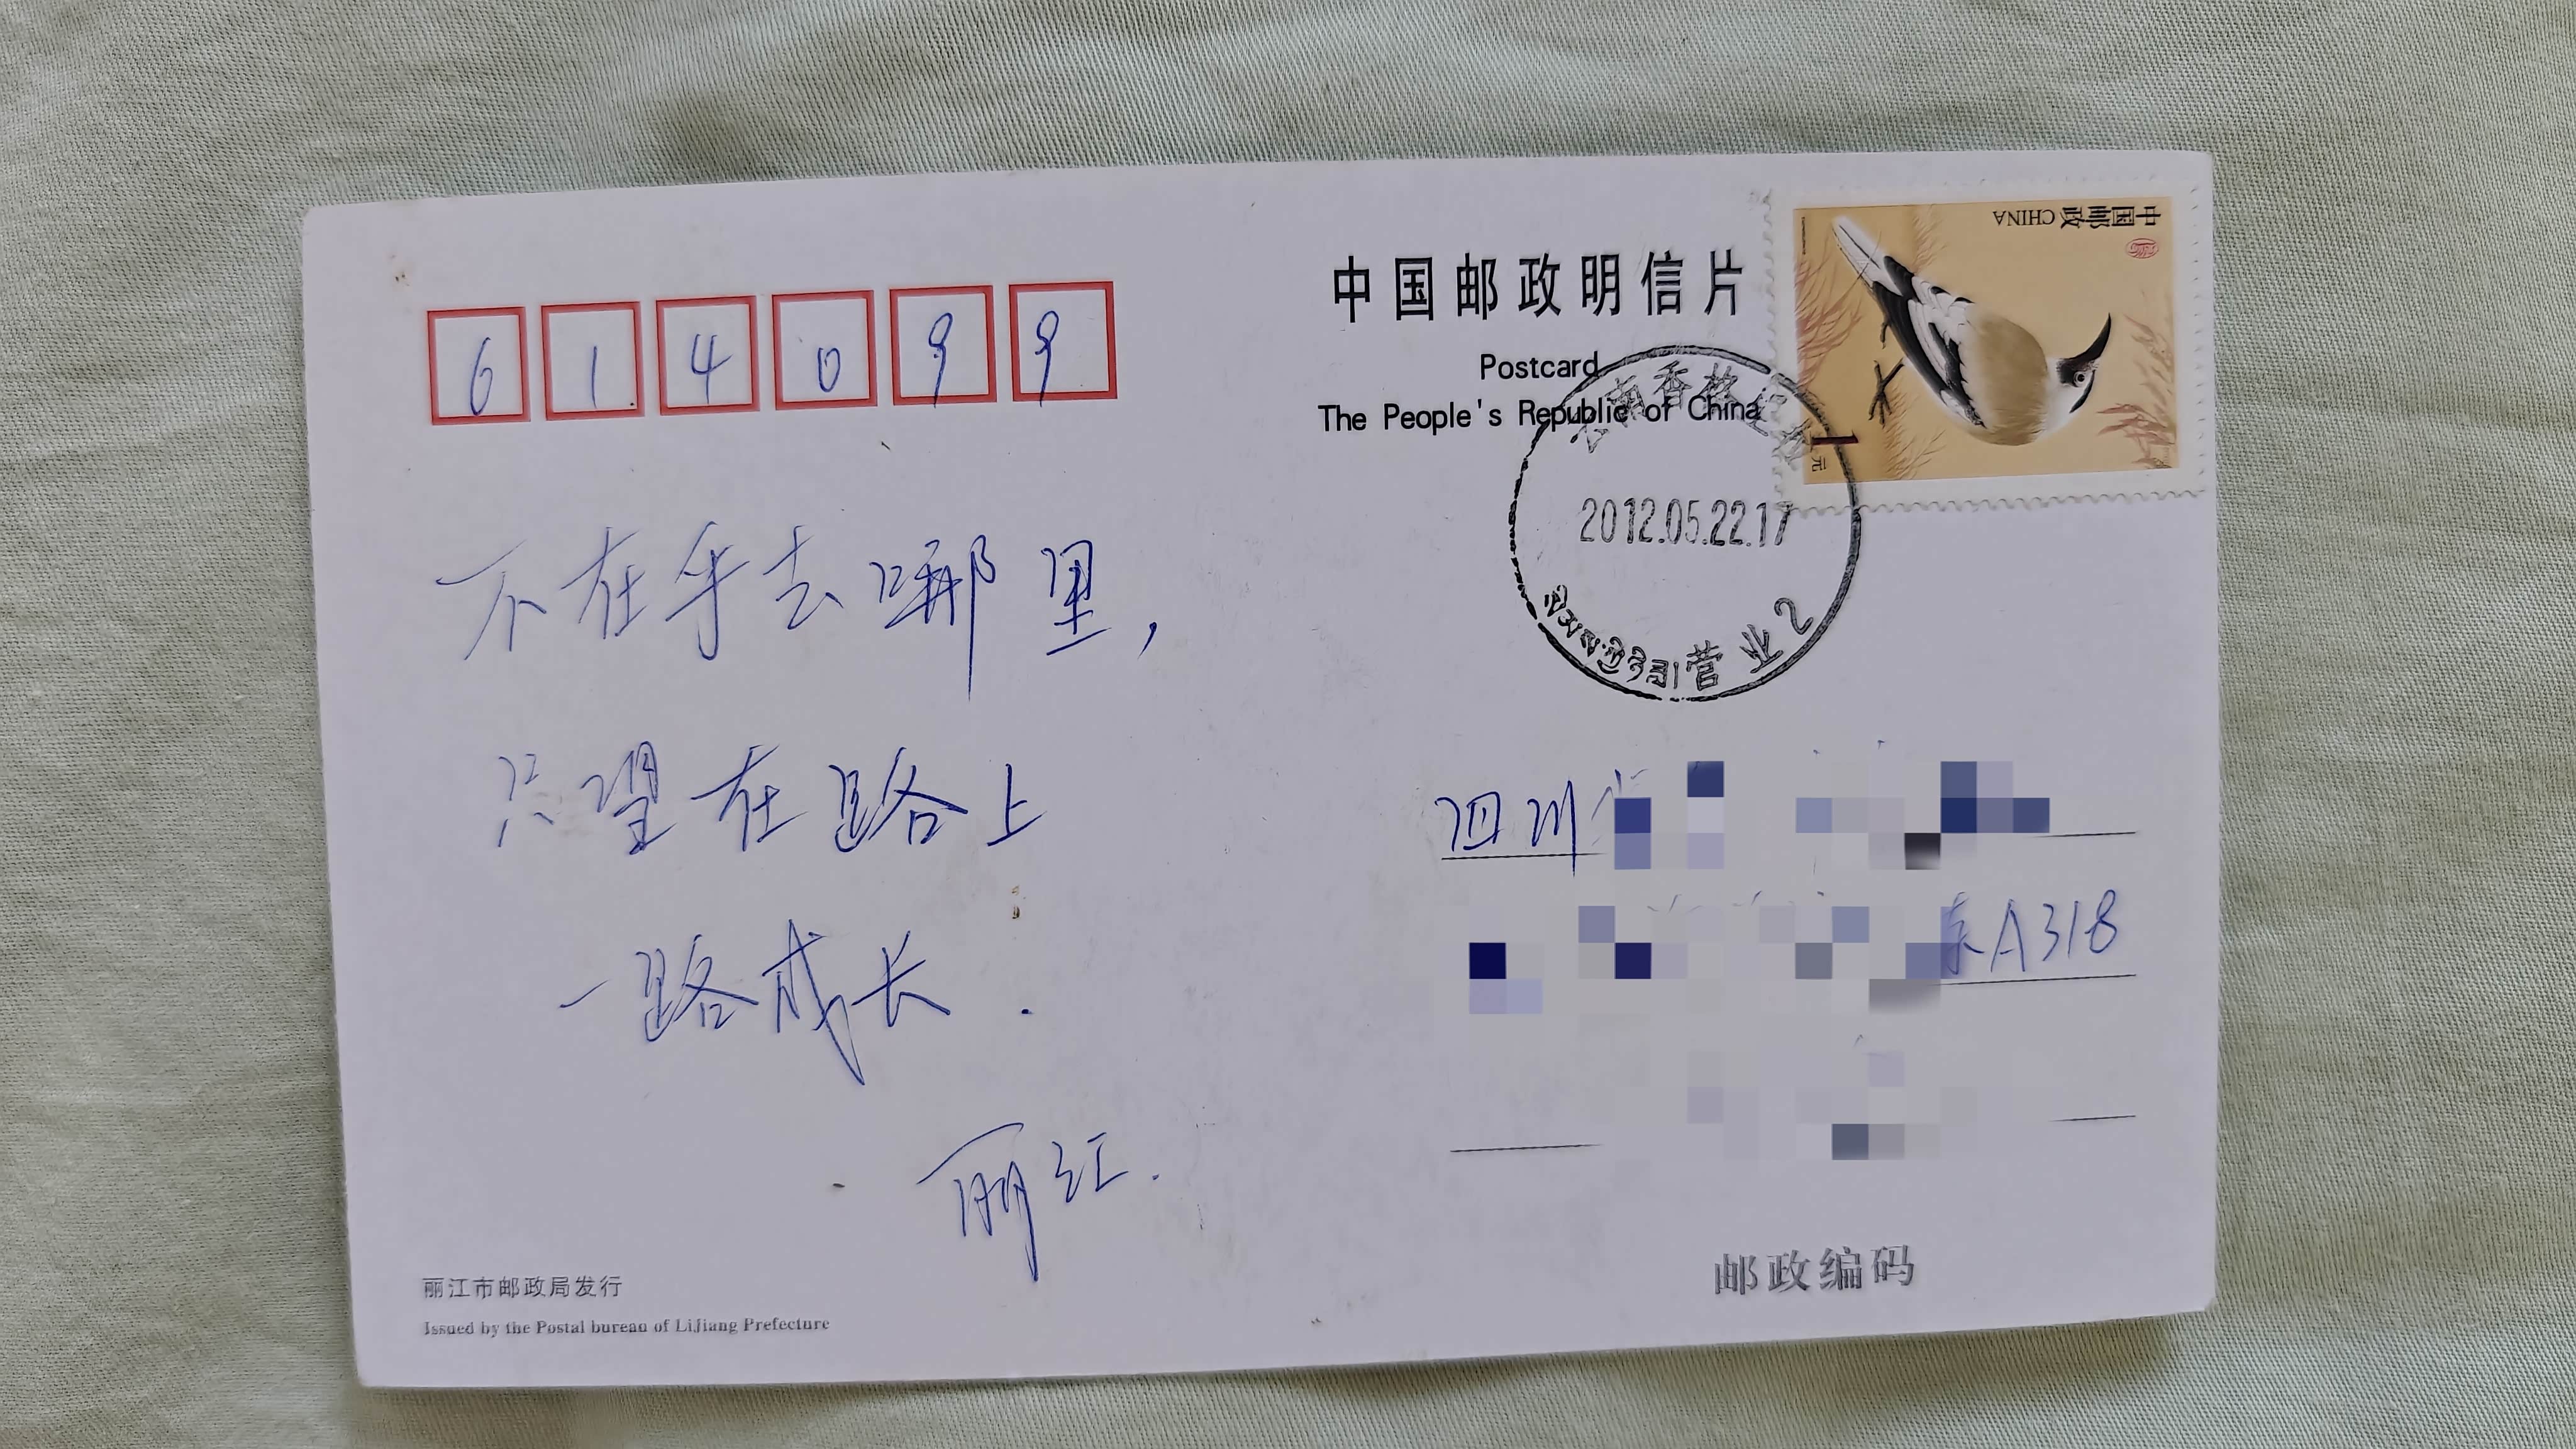 614099
中国邮政明信片
Postcard
The People's Republic of China
中国邮政 CHINA
1元
云南香格里拉
2012.05.22.17
营业2
不在乎去哪里,
只望在路上
一路成长.
丽江.
四川
A318
丽江市邮政局发行
Issued by the Postal bureau of LiJiang Prefecture
邮政编码